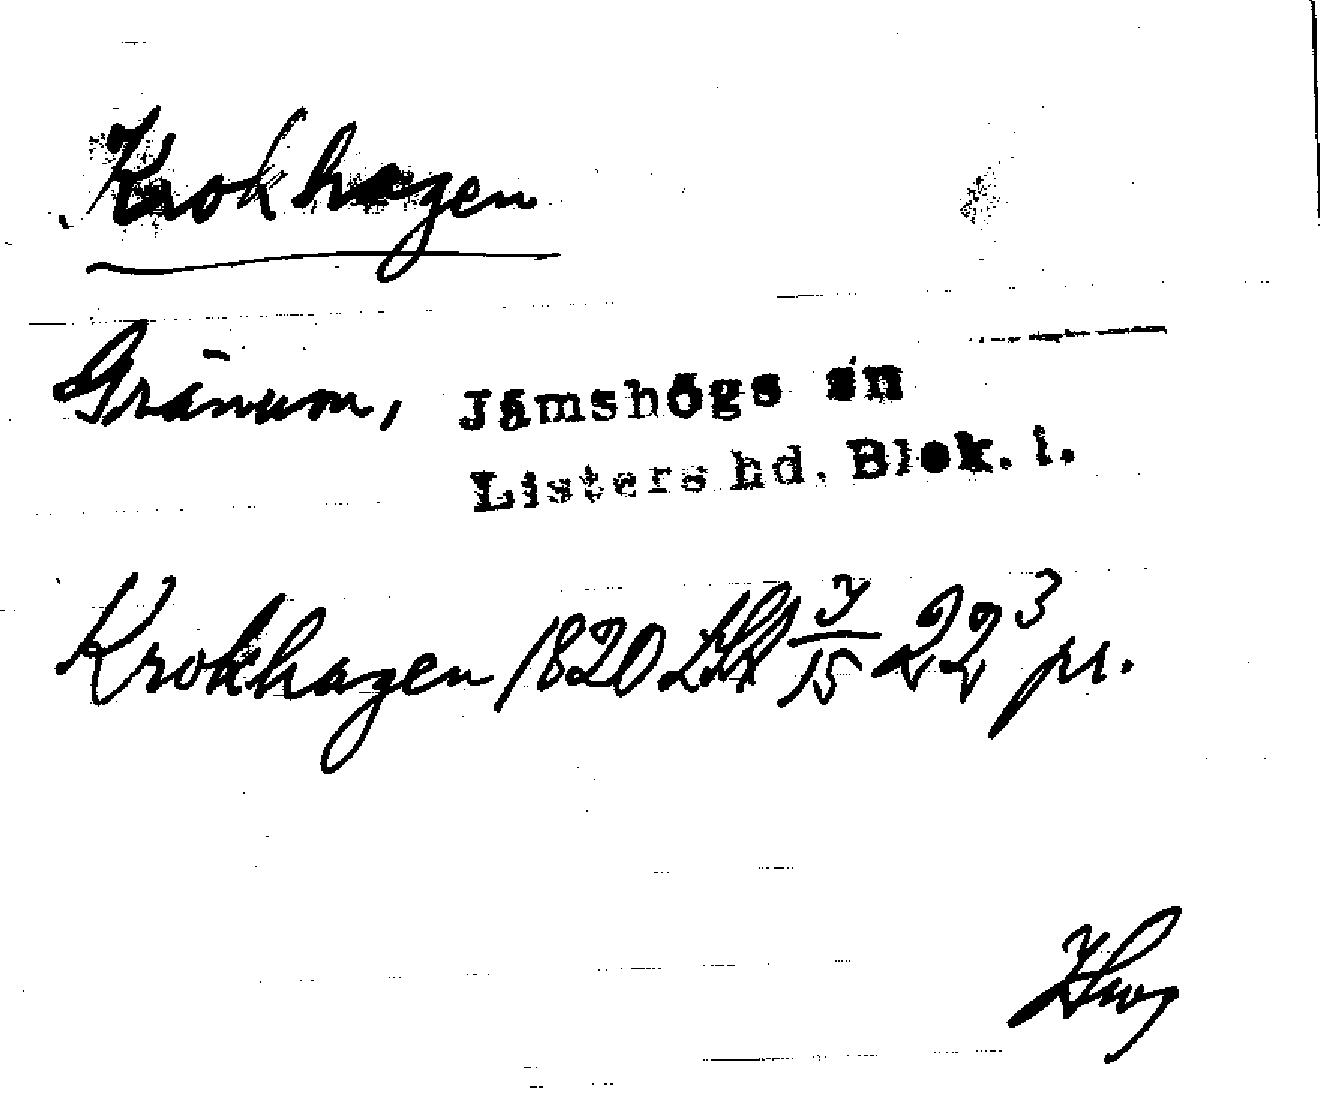 Krokhagen
Gränum, Jämshögs sn
Listers hd. Blek. l.
Krokhagen 1820 LSA 22³ pr.